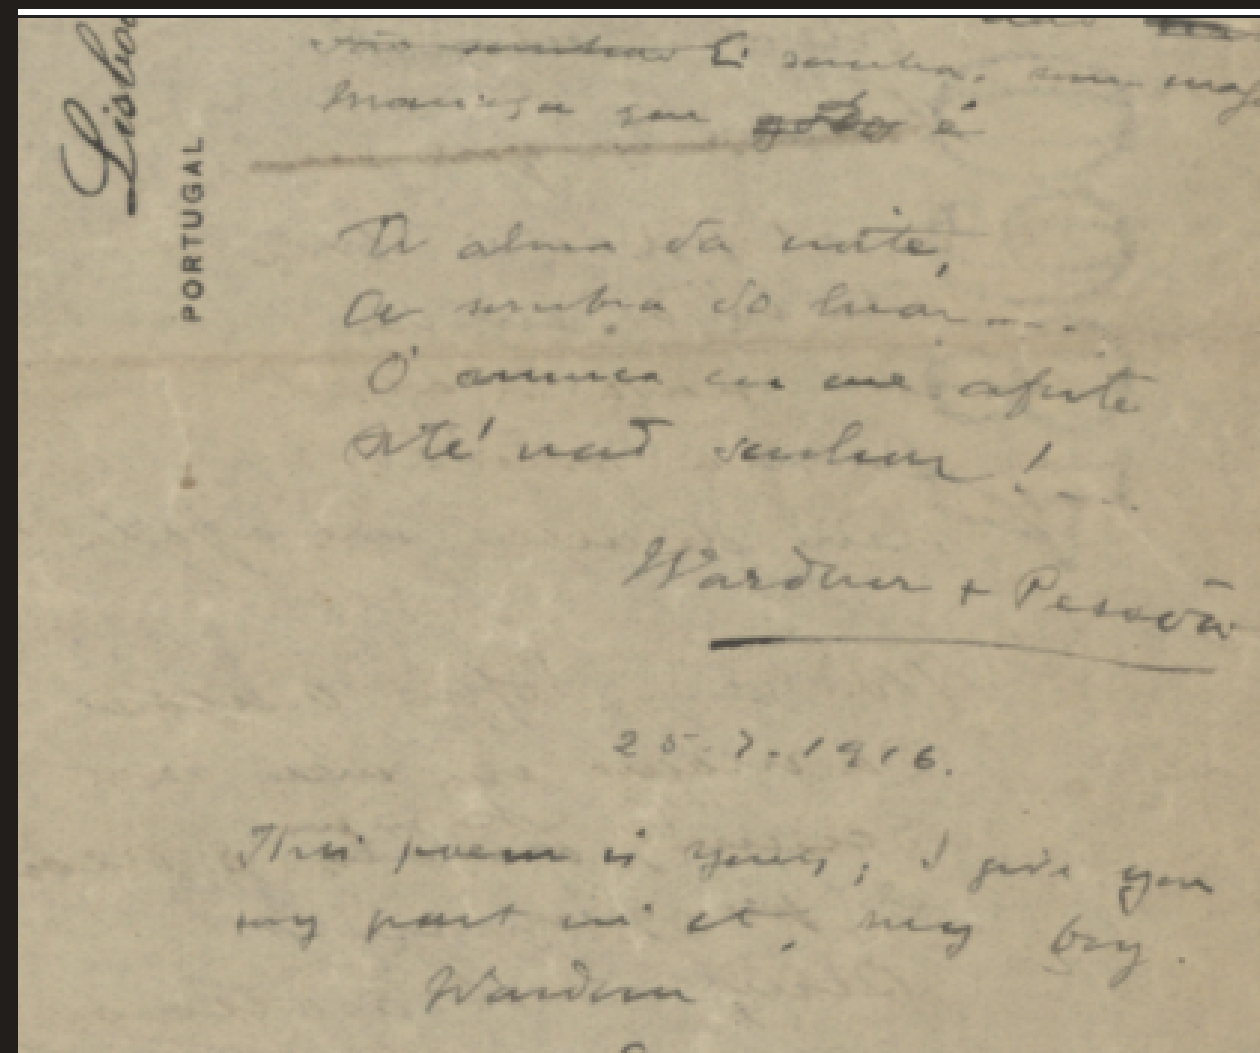 Lisboa
PORTUGAL
sombra,
que é
alma da noite,
A sombra do luar....
Ó nunca eu me afoite
Até nad senhor!...
Wardour + Pessoa
25.7.1916.
This poem is yours; I give you
my part in it, my boy.
Wardour